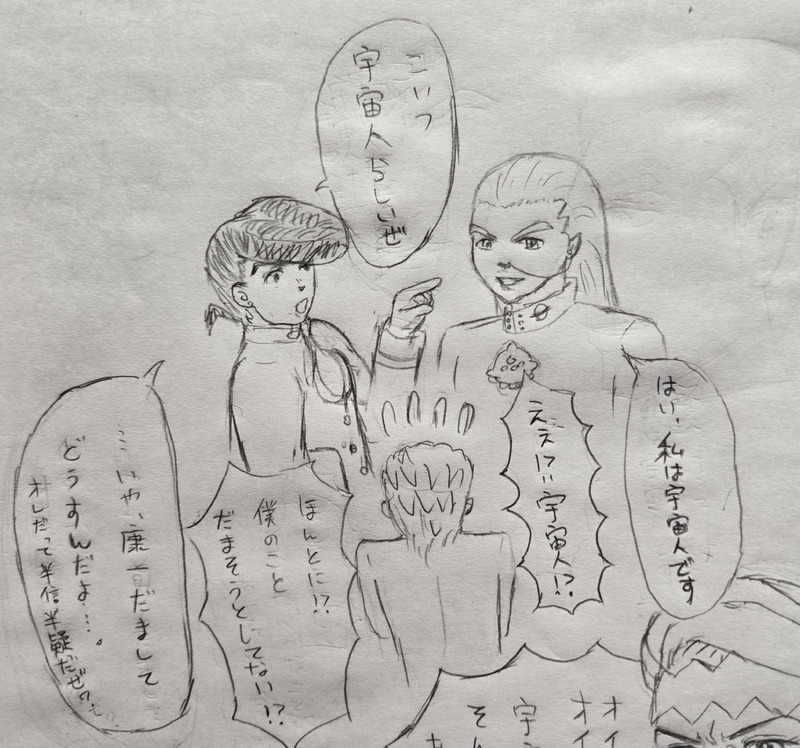 こいつ
宇宙人らしいぜ
はい、私は宇宙人です
ええ!?宇宙人!?
ほんとに!?
僕のこと
だまそうとしてない!?
…いや、康一だまして
どうすんだよ…。
オレだって半信半疑だぜ。
オイ
オイ
宇
そん